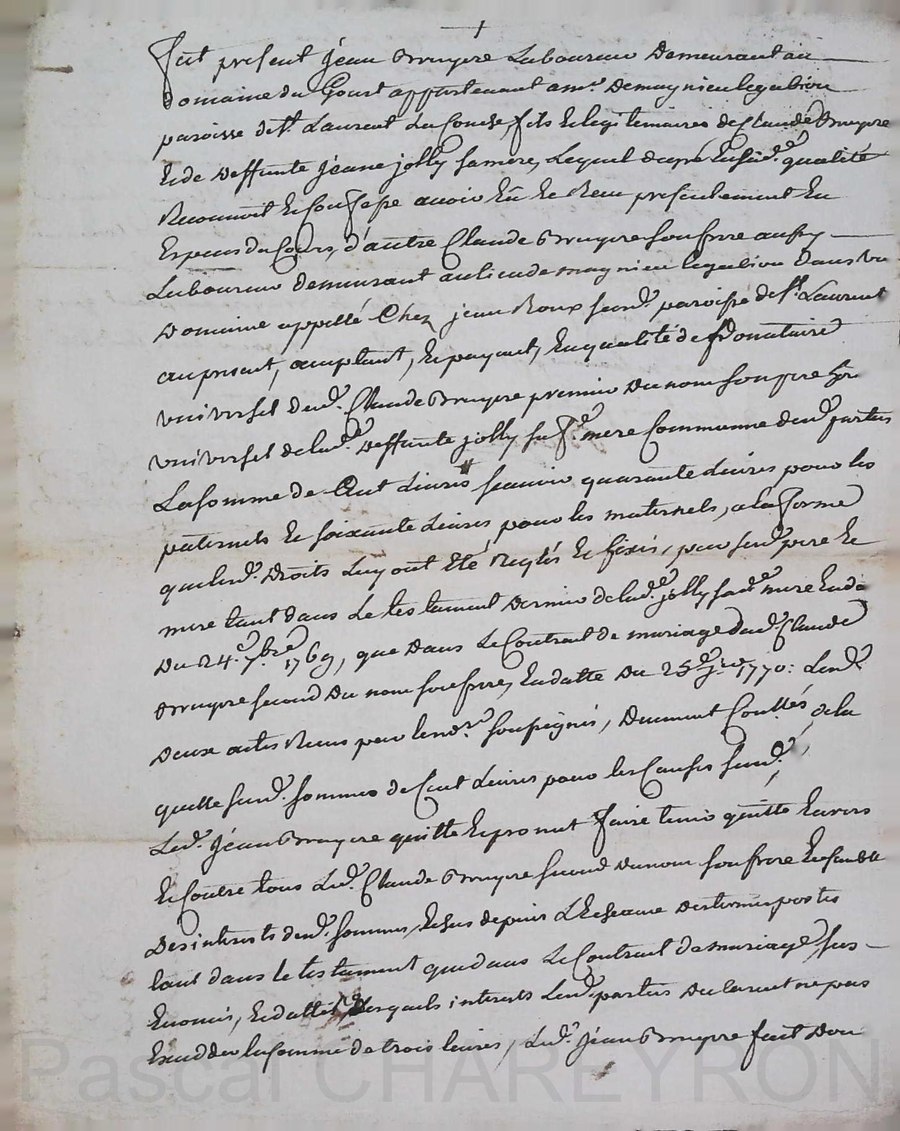 fut present jéan Bruyere Laboureur Demeurant au
Domaine du Goust appartenant a mr. De magnieu le gabion
paroisse de St. Laurent La Conche, fils Et legitemaire de Claude Bruyere
Et de Deffunte jéane jolly sa mere, Lequel de gré En sad.e qualité
Reconnoit Et Confesse avoir Eu Et Reçu presentement En
Especes du Cours, d'autre Claude Bruyere Son frere aussy
Laboureur demeurant au lieu de magnieu le gabion Dans un
Domaine appellé Chez jean Roux susd. paroisse de St. Laurent
au present, acceptant, Et payant, En qualité de donataire
universel dud. Claude Bruyere premier Du nom Son pere
universel de lad.e Deffunte jolly sa de. mere Commune desd. parties
La somme de Cent Livres scavoir quarante Livres pour les
paternels Et soixante Livres pour les maternels, a la forme
que lesd. Droits Luy ont Eté Reglés Et fixés, par sesd. pere Et
mere tant dans Le testament Dernier de lad.e jolly sad.e mere En datte
Du 24.e 7.bre 1769, que Dans Le Contrat de mariage dud. Claude
Bruyere second Du nom son frere, En datte Du 25.e 1770: Lesd.
Deux actes Reçus par le no.re soussigné, Duement Contlés, de la
quelle susd. somme de Cent Livres pour les Causes susd.
Led. jéan Bruyere quitte Et promet faire tenir quitte Envers
Et Contre tous Led. Claude Bruyere second Du nom son frere Ensemble
Des interets desd. sommes, Echus depuis L'Echeance Des termes portés
tant dans le testament que dans Le Contrat de mariage sus
Enoncés, Et dattés, Desquels interets Lesd. parties Declarent ne pas
Exceder la somme de trois livres, Led. jéan Bruyere fait Don
Pascal CHAREYRON